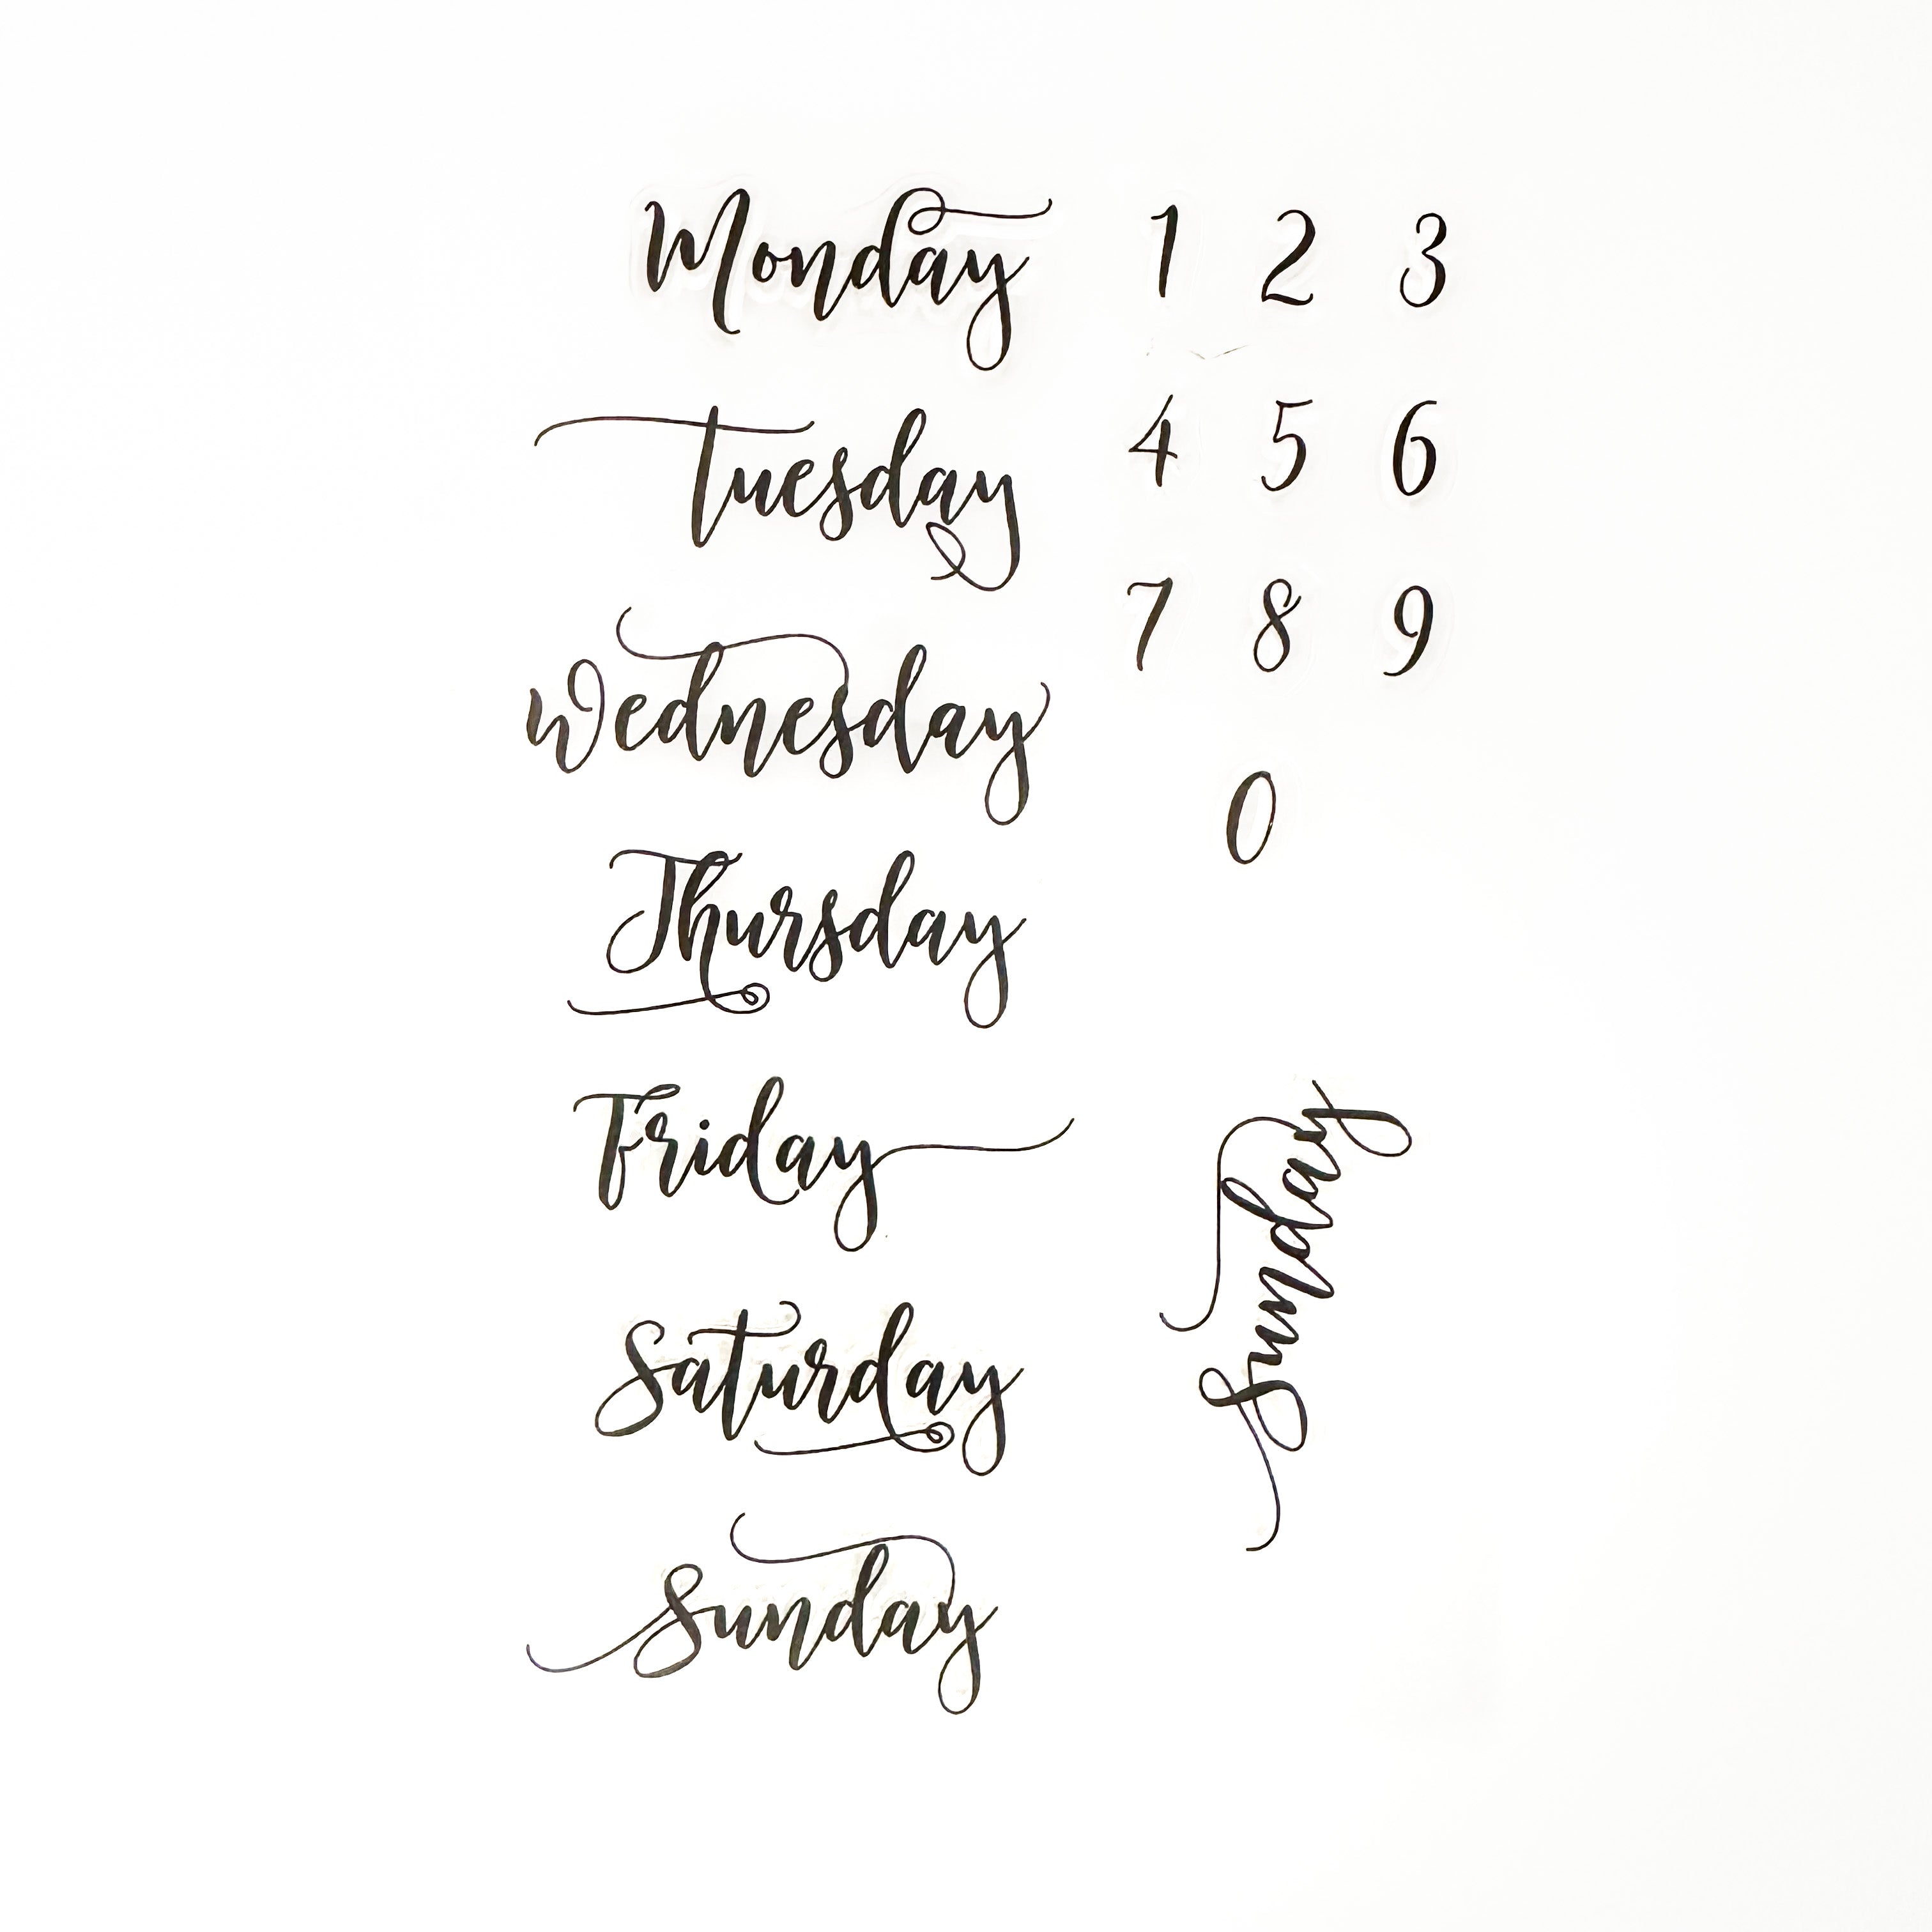 Monday
Tuesday
Wednesday
Thursday
Friday
Saturday
Sunday
1 2 3
4 5 6
7 8 9
0
Sunday